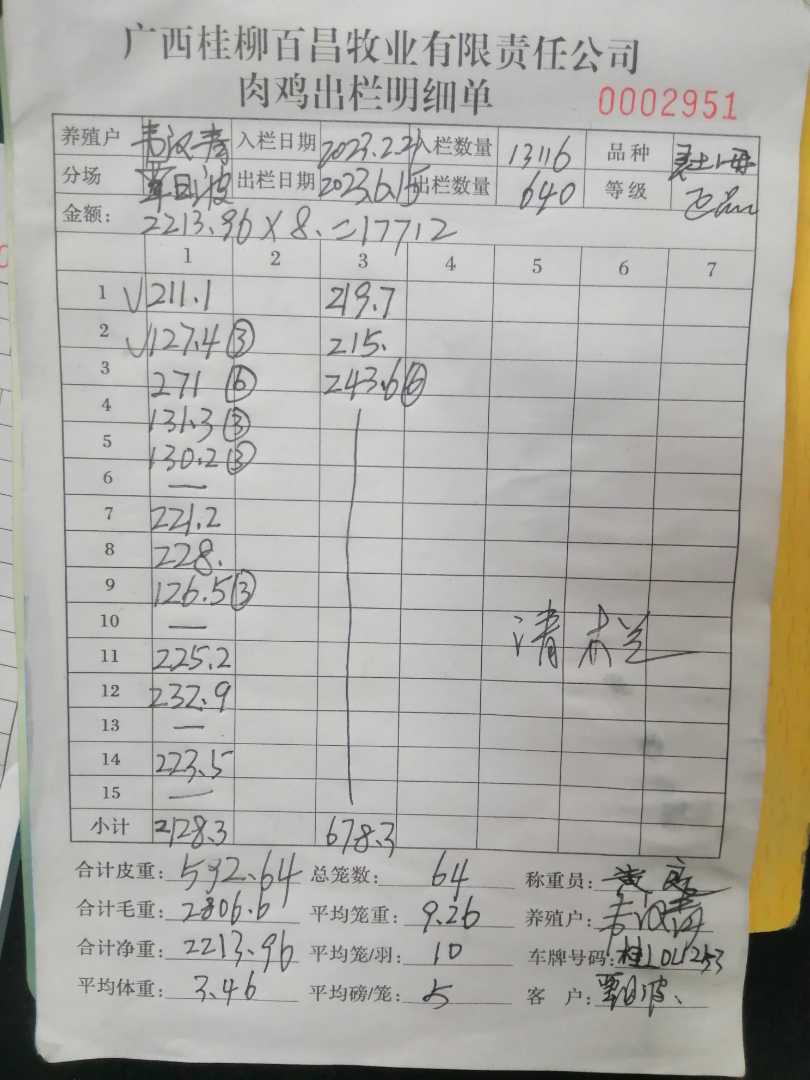 广西桂柳百昌牧业有限责任公司
肉鸡出栏明细单 0002951
养殖户 韦汉青 入栏日期 2023.2.21 入栏数量 13116 品种
分场 覃日波 出栏日期 2023.6.15 出栏数量 640 等级
金额: 2213.96×8.=17712
1 2 3 4 5 6 7
1 √211.1 219.7
2 √127.4③ 215.
3 271⑥ 243.6⑥
4 131.3③
5 130.2③
6 —
7 221.2
8 228.
9 126.5③
10 —
11 225.2
12 232.9
13 —
14 223.5
15 —
清栏
小计 2128.3 678.3
合计皮重: 592.64 总笼数: 64 称重员:
合计毛重: 2806.6 平均笼重: 9.26 养殖户: 韦汉青
合计净重: 2213.96 平均笼/羽: 10 车牌号码: 桂L
平均体重: 3.46 平均磅/笼: 5 客 户: 覃日波